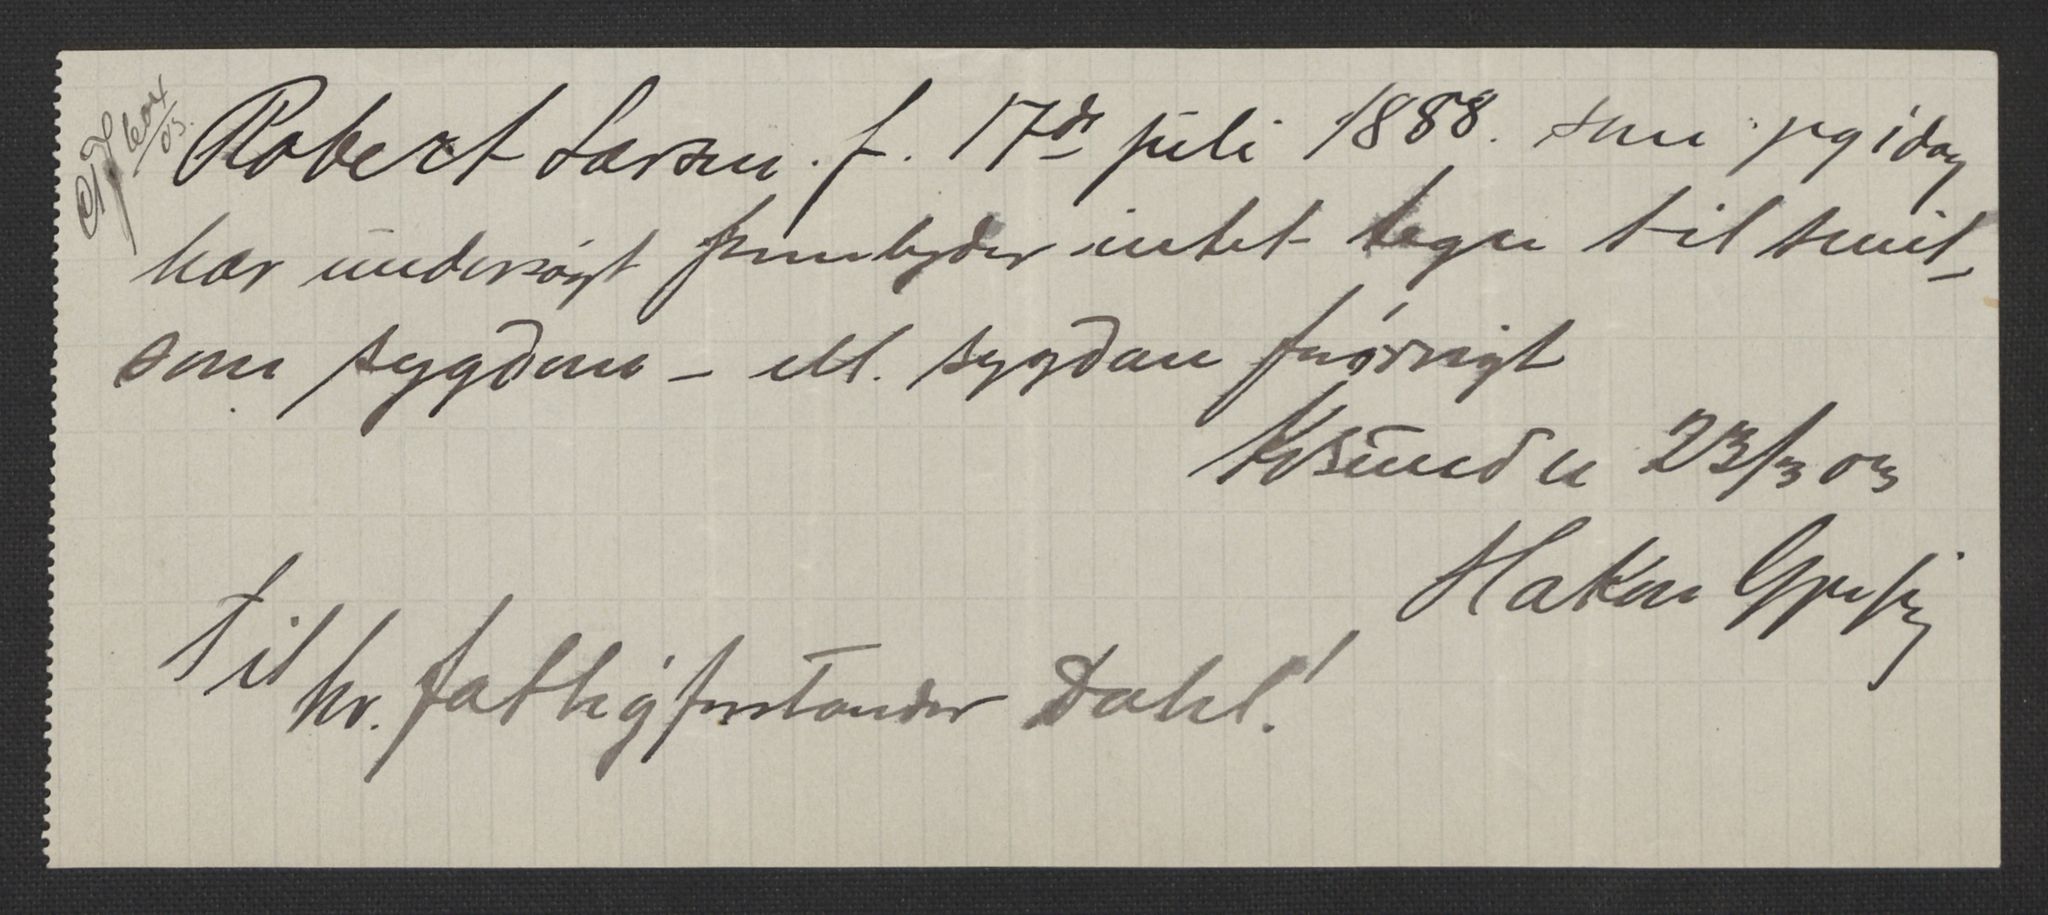 Robert Larsen. f. 17de juli 1888. som jeg idag
har undersøgt frembyder intet tegn til smit-
som sygdom – ell. sygdom forøvrigt
Ksund n 23/3 03
Hakon
Til
hr. fattigforstander Dahl!